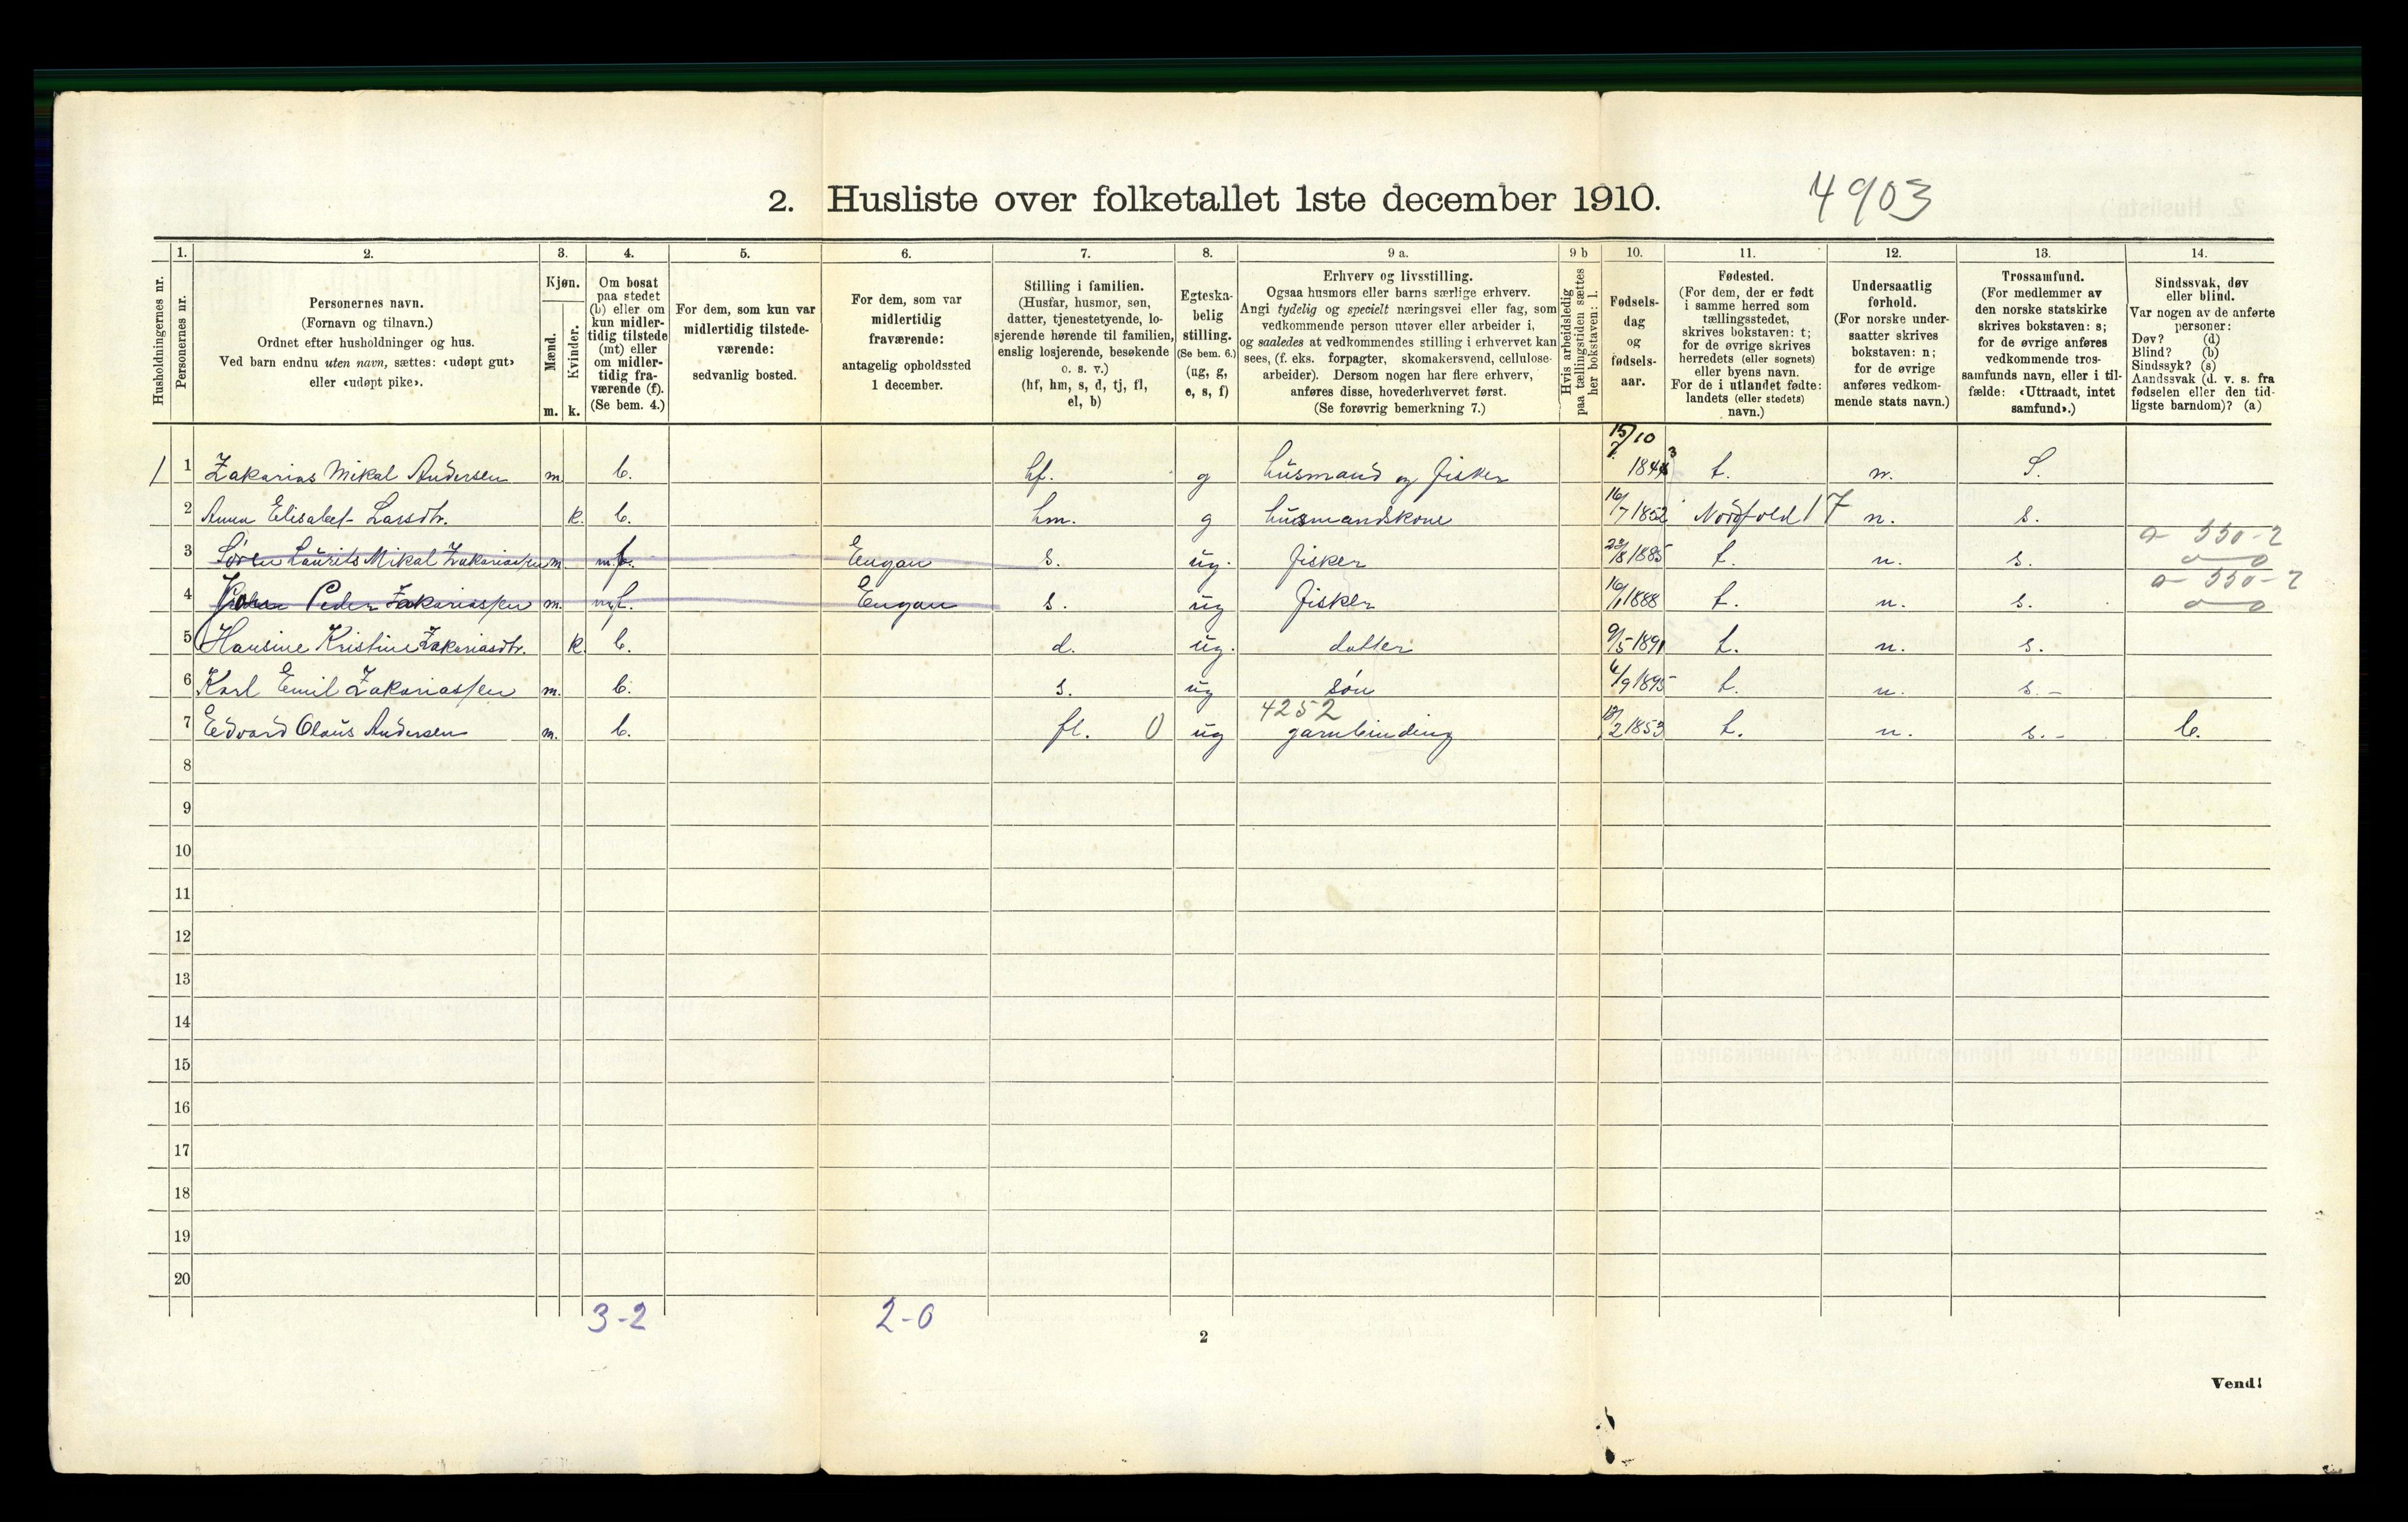 2. Husliste over folketallet 1ste december 1910.
4903
Husholdningernes nr.
1.
Personernes nr.
2.
Personernes navn.
(Fornavn og tilnavn.)
Ordnet efter husholdninger og hus.
Ved barn endnu uten navn, sættes: «udøpt gut»
eller «udøpt pike».
3.
Kjøn.
Mænd.
Kvinder.
m. k.
4.
Om bosat
paa stedet
(b) eller om
kun midler-
tidig tilstede
(mt) eller
om midler-
tidig fra-
værende (f).
(Se bem. 4.)
5.
For dem, som kun var
midlertidig tilstede-
værende:
sedvanlig bosted.
6.
For dem, som var
midlertidig
fraværende:
antagelig opholdssted
1 december.
7.
Stilling i familien.
(Husfar, husmor, søn,
datter, tjenestetyende, lo-
sjerende hørende til familien,
enslig losjerende, besøkende
o. s. v.)
(hf, hm, s, d, tj, fl,
el, b)
8.
Egteska-
belig
stilling.
(Se bem. 6.)
(ug, g,
e, s, f)
9 a.
Erhverv og livsstilling.
Ogsaa husmors eller barns særlige erhverv.
Angi tydelig og specielt næringsvei eller fag, som
vedkommende person utøver eller arbeider i,
og saaledes at vedkommendes stilling i erhvervet kan
sees, (f. eks. forpagter, skomakersvend, cellulose-
arbeider). Dersom nogen har flere erhverv,
anføres disse, hovederhvervet først.
(Se forøvrig bemerkning 7.)
9 b
Hvis arbeidsledig
paa tællingstiden sættes
her bokstaven: l.
10.
Fødsels-
dag
og
fødsels-
aar.
11.
Fødested.
(For dem, der er født
i samme herred som
tællingsstedet,
skrives bokstaven: t;
for de øvrige skrives
herredets (eller sognets)
eller byens navn.
For de i utlandet fødte:
landets (eller stedets)
navn.)
12.
Undersaatlig
forhold.
(For norske under-
saatter skrives
bokstaven: n;
for de øvrige
anføres vedkom-
mende stats navn.)
13.
Trossamfund.
(For medlemmer av
den norske statskirke
skrives bokstaven: s;
for de øvrige anføres
vedkommende tros-
samfunds navn, eller i til-
fælde: «Uttraadt, intet
samfund».)
14.
Sindssvak, døv
eller blind.
Var nogen av de anførte
personer:
Døv? (d)
Blind? (b)
Sindssyk? (s)
Aandssvak (d. v. s. fra
fødselen eller den tid-
ligste barndom)? (a)
1 1 Zakarias Mikal Andersen m b. hf. g husmand og fisker 15/10 1843 t. n. S.
2 Anna Elisabet Larsdtr. k. b. hm. g husmandskone 16/7 1852 Nordfold 17 n. s.
3 Sören Laurits Mikal Zakariassen m f. Engan s. ug. fisker 23/8 1885 t. n. s. 550-2
4 Peder Zakariassen m. f. Engan s. ug fisker 16/1 1888 t. n. s. 550-2
5 Hansine Kristine Zakariasdtr. k b. d. ug. datter 9/5-1891 t. n. s.
6 Karl Emil Zakariassen m. b. s. ug søn 4/9 1895 t. n. s.-
7 Edvard Olaus Andersen m. b. fl. 0 ug 4252 garnbinding 13/2 1853 t. n. s.- b.
8
9
10
11
12
13
14
15
16
17
18
19
20
3-2 2-0
2
Vend!